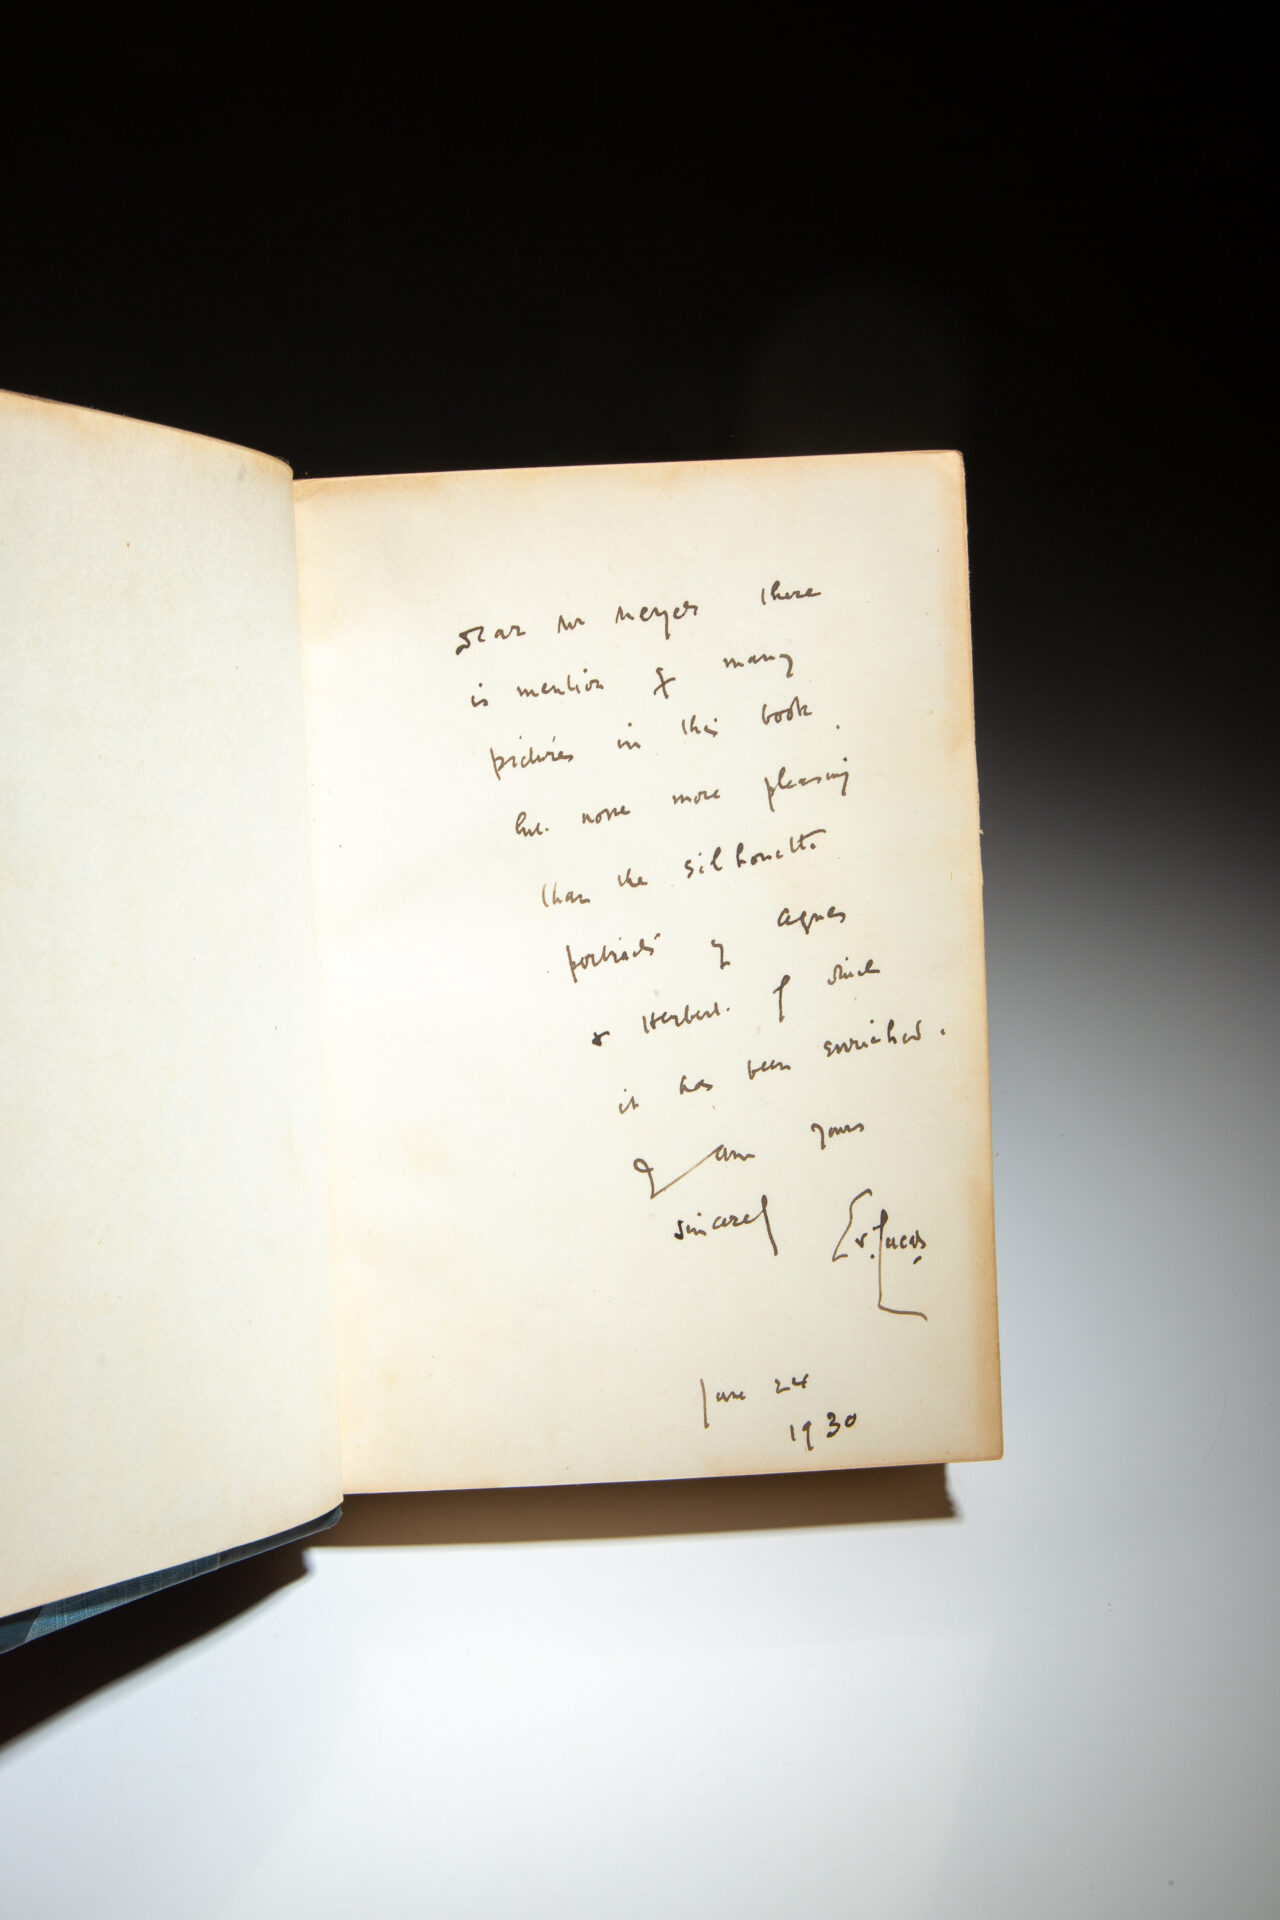 Dear Mr Meyer there
is mention of many
pictures in this book
but none more pleasing
than the silhouette
portraits of Agnes
& Herbert of which
it has been enriched.
I am yours
sincerely E. V. Lucas
June 24
1930